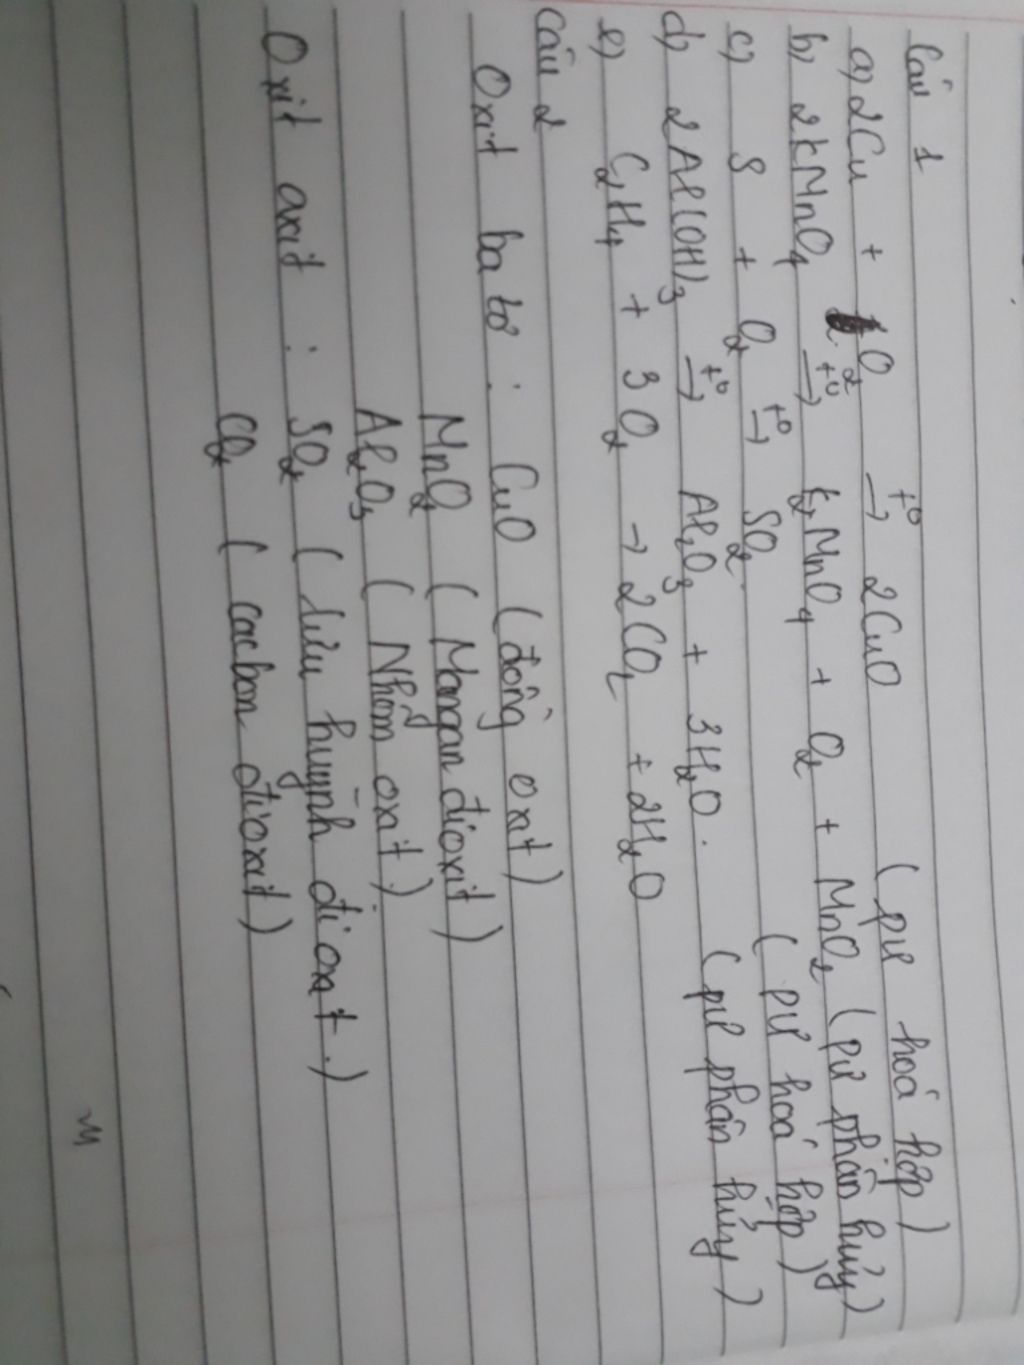 Câu 1
a) 2Cu + O2 t° → 2CuO (pư hoá hợp)
b) 2KMnO4 t° → K2MnO4 + O2 + MnO2 (pư phân huỷ)
c) S + O2 t° → SO2. (pư hoá hợp)
d) 2Al(OH)3 t° → Al2O3 + 3H2O. (pư phân hủy)
e) C2H4 + 3O2 → 2CO2 + 2H2O
Câu 2
Oxit ba tơ : CuO (đồng oxit)
MnO2 (Mangan đioxit)
Al2O3 (Nhôm oxit).
Oxit axit : SO2 (lưu huỳnh đi oxit.)
CO2 (cacbon đioxit)